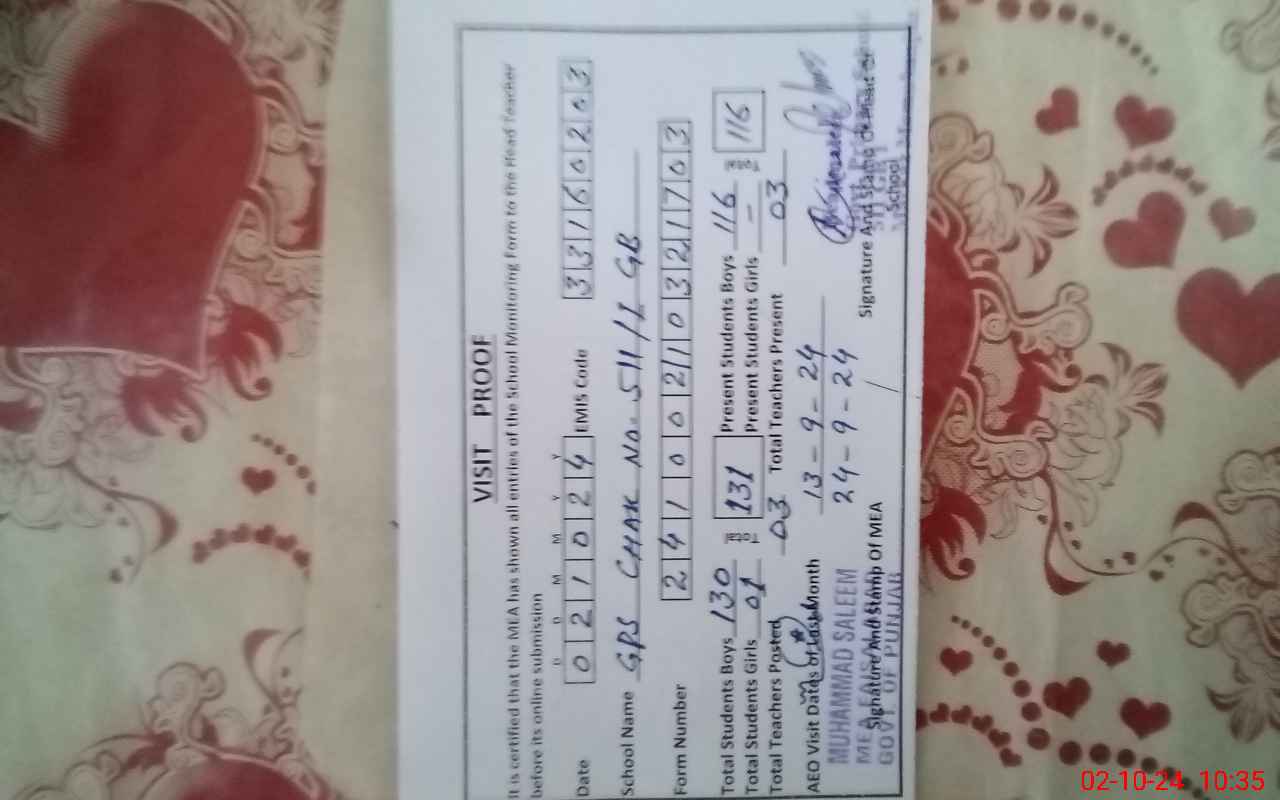 VISIT PROOF
It is certified that the MEA has shown all entries of the School Monitoring Form to the Head Teacher
before its online submission
D D M M Y Y
Date 0 2 1 0 2 4 EMIS Code 3 3 1 6 0 2 0 3
School Name GPS CHAK NO. 511/1 GB
Form Number 2 4 1 0 0 2 1 0 3 2 1 7 0 3
Total Students Boys 130 Total 131 Present Students Boys 116 116
Total Students Girls 01 Present Students Girls -
Total Teachers Posted 03 Total Teachers Present 03
AEO Visit Dates of Last Month 13-9-24
24-9-24
MUHAMMAD SALEEM
MEA FAISALABAD
GOVT OF PUNJAB
Signature And Stamp Of MEA
Signature And Stamp Of Head Of
School
02-10-24 10:35